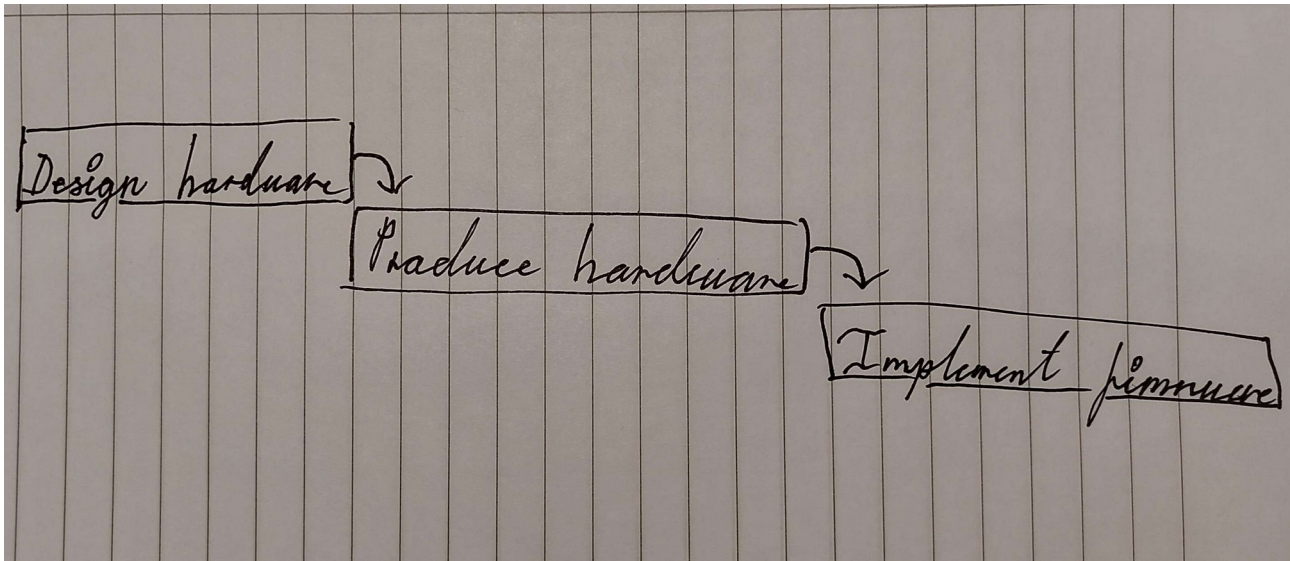 Design hardware
Produce hardware
Implement firmware